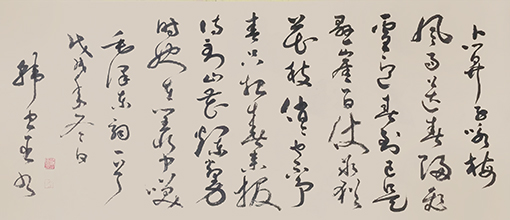 卜算子咏梅
风雨送春归飛
雪迎春到已是
悬崖百丈冰犹
花枝俏也不争
春只把春来报
待到山花烂漫
时她在丛中笑
毛泽东词一首
戊戌年冬日